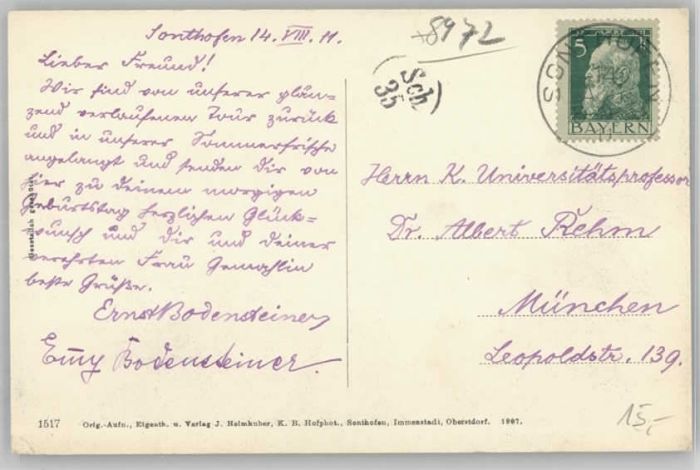 Sonthofen 14. VIII. 11.
Lieber Freund!
Wir sind von unserer glän-
zend verlaufenen Tour zurück
und in unserer Sommerfrische
angelangt und senden dir von
hier zu deinem morgigen
Geburtstag herzlichen Glück-
wunsch und dir und deiner
verehrten Frau Gemahlin
beste Grüße.
Ernst Bodensteiner
Emy Bodensteiner.
8972
Sch
35
5
BAYERN
SONTHOFEN
Herrn K. Universitätsprofessor
Dr. Albert Rehm
München
Leopoldstr. 139.
15,-
1517 Orig.-Aufn., Eigenth. u. Verlag J. Heimhuber, K. B. Hofphot., Sonthofen, Immenstadt, Oberstdorf. 1907.